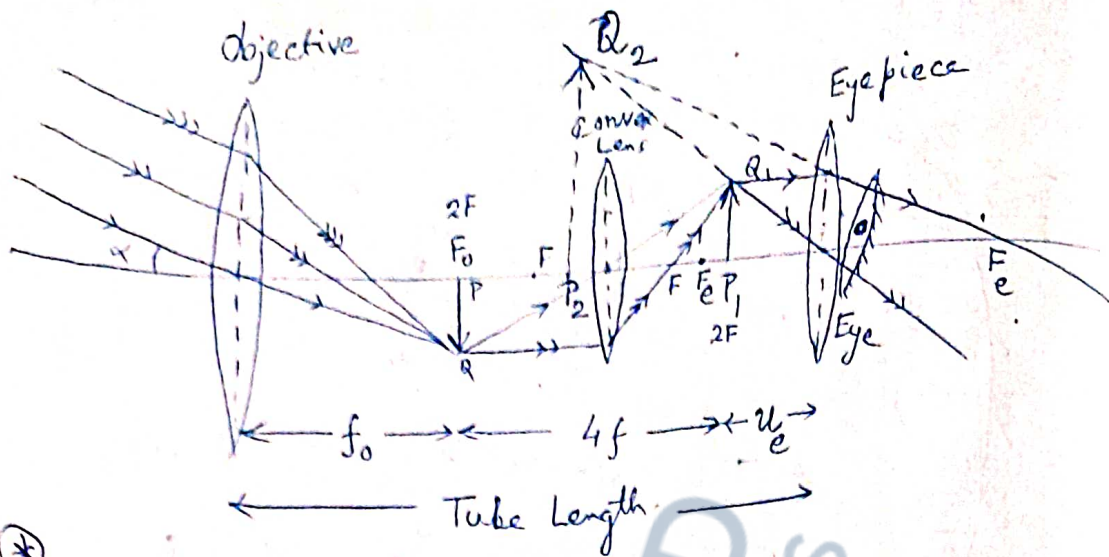 Objective
Q2
Eyepiece
Convex
Lens
Q1
2F
F0
α
F
P
P2
F
Fe
P1
2F
Fe
Q
Eye
f0
4f
ue
Tube Length
*